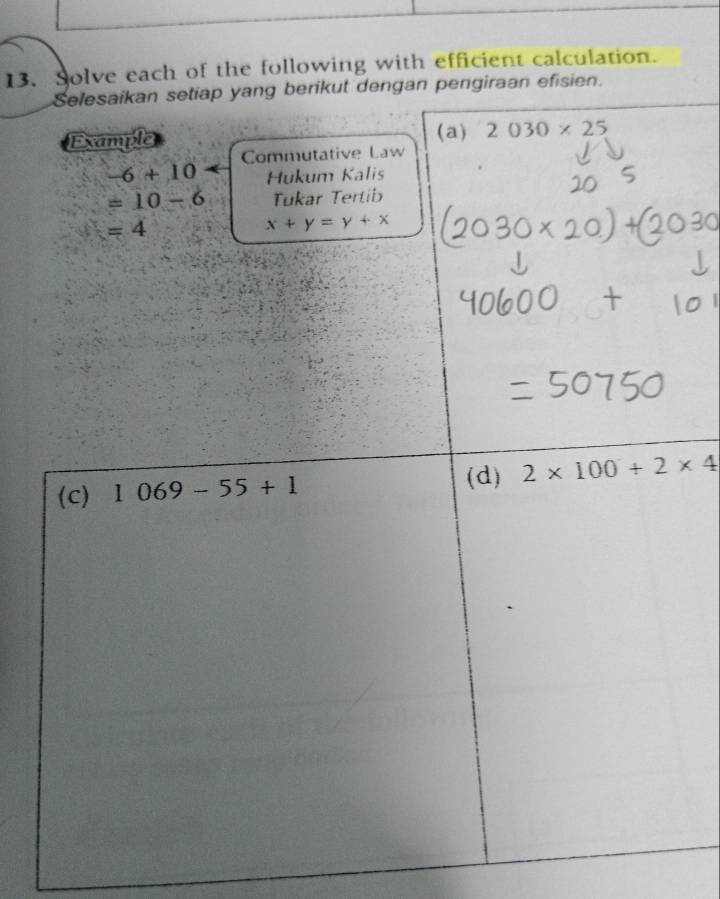 13. Solve each of the following with efficient calculation.
Selesaikan setiap yang berikut dengan pengiraan efisien.
Example
-6 + 10
= 10 - 6
= 4
Commutative Law
Hukum Kalis
Tukar Tertib
x + y = y + x
(a) 2 030 × 25
20 5
(2030 × 20) + (2030
40600 + 101
= 50750
(c) 1 069 - 55 + 1
(d) 2 × 100 + 2 × 4